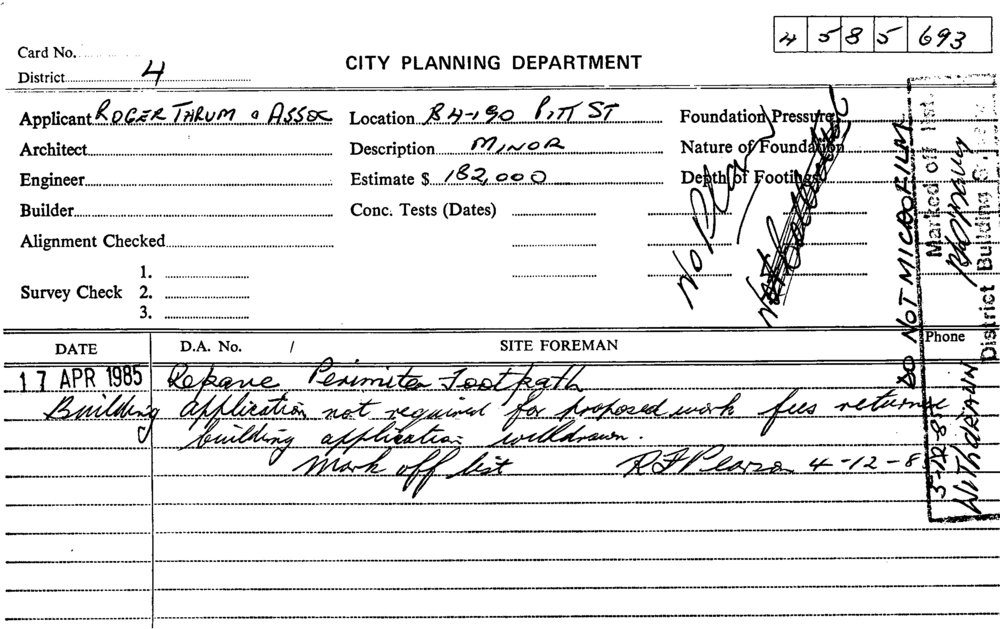 4 5 8 5 693
Card No.
District 4
CITY PLANNING DEPARTMENT
Applicant ROGER THRUM & ASSOC
Location 84-190 PITT ST
Foundation Pressure
Architect
Description MINOR
Nature of Foundation
Engineer
Estimate $ 182,000
Depth of Footings
Builder
Conc. Tests (Dates)
Alignment Checked
Survey Check
1.
2.
3.
No Plan
DO NOT MICROFILM
Marked off list.
District Building
5-12-8
WITHDRAWN
DATE
D.A. No. /
SITE FOREMAN
Phone
17 APR 1985 Repave Perimiter Footpath
Building application not required for proposed work fees
building application withdrawn.
Mark off list R F Pearson 4-12-85